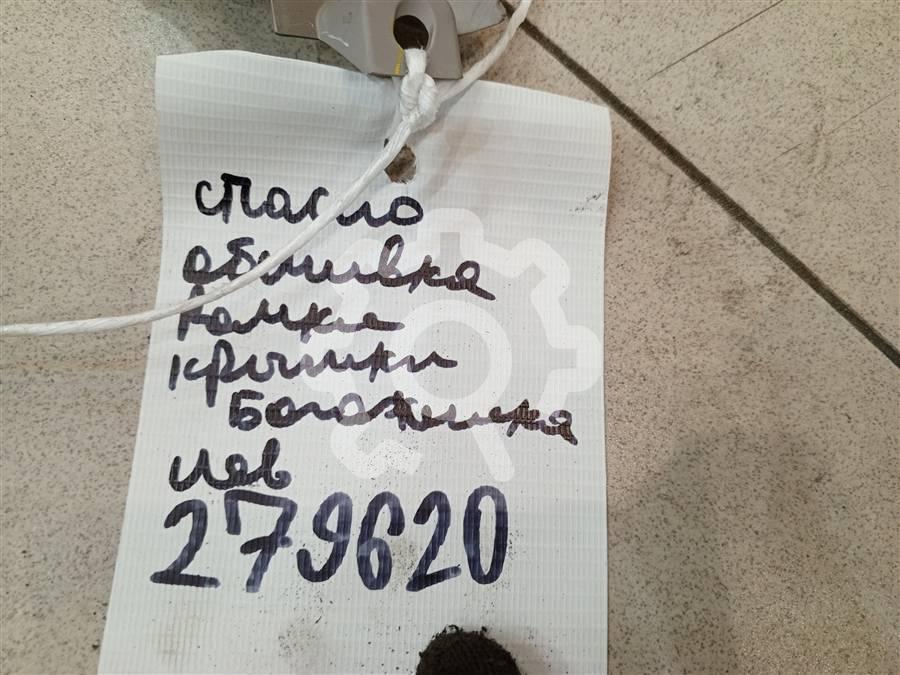 спасио
обшивка
рамки
крышки
Багажника
лев
279620